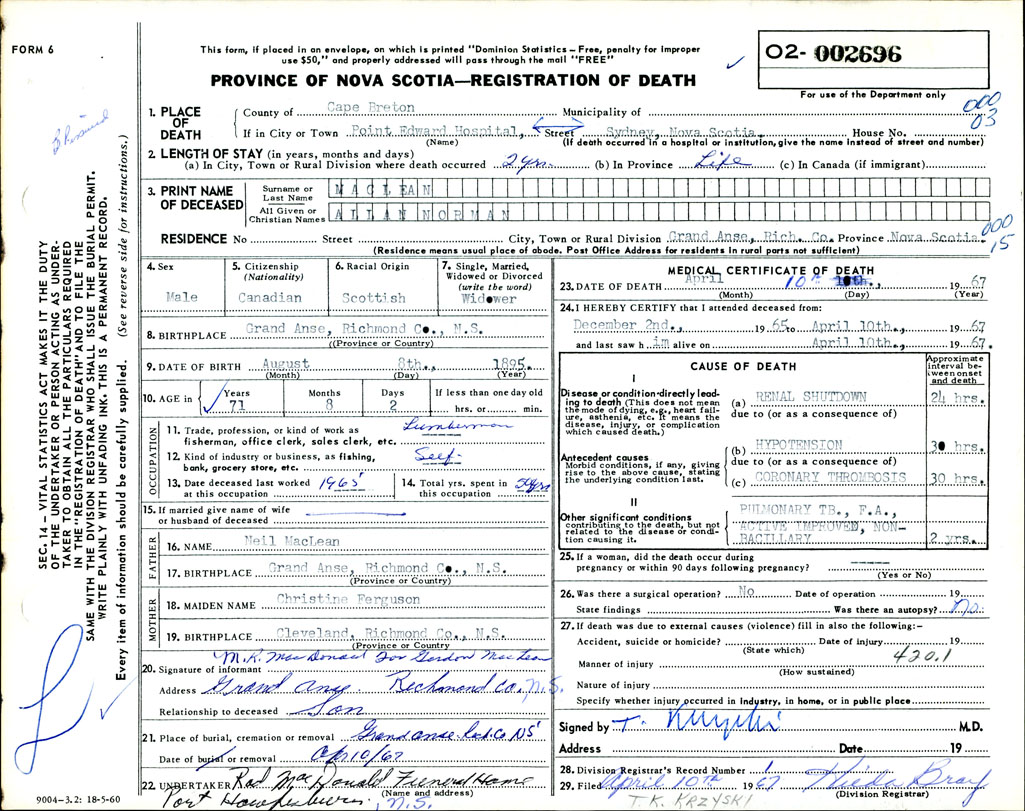 FORM 6
This form, if placed in an envelope, on which is printed "Dominion Statistics – Free, penalty for improper
use $50," and properly addressed will pass through the mail "FREE"
PROVINCE OF NOVA SCOTIA—REGISTRATION OF DEATH
02- 002696
For use of the Department only
000
03
1. PLACE OF DEATH
County of Cape Breton Municipality of
If in City or Town Point Edward Hospital, Street Sydney, Nova Scotia. House No.
(Name) (If death occurred in a hospital or institution, give the name instead of street and number)
2. LENGTH OF STAY (in years, months and days)
(a) In City, Town or Rural Division where death occurred 2 yrs. (b) In Province Life (c) In Canada (if immigrant)
3. PRINT NAME OF DECEASED
Surname or Last Name MACLEAN
All Given or Christian Names ALLAN NORMAN
000
15
RESIDENCE No Street City, Town or Rural Division Grand Anse, Rich. Co. Province Nova Scotia.
(Residence means usual place of abode. Post Office Address for residents in rural parts not sufficient)
4. Sex
Male
5. Citizenship
(Nationality)
Canadian
6. Racial Origin
Scottish
7. Single, Married,
Widowed or Divorced
(write the word)
Widower
8. BIRTHPLACE Grand Anse, Richmond Co., N.S.
(Province or Country)
9. DATE OF BIRTH August 8th., 1895.
(Month) (Day) (Year)
10. AGE in Years 71 Months 8 Days 2 If less than one day old
hrs. or min.
OCCUPATION
11. Trade, profession, or kind of work as Lumberman
fisherman, office clerk, sales clerk, etc.
12. Kind of industry or business, as fishing, Self
bank, grocery store, etc.
13. Date deceased last worked 1965
at this occupation
14. Total yrs. spent in
this occupation
15. If married give name of wife
or husband of deceased
FATHER
16. NAME Neil MacLean
17. BIRTHPLACE Grand Anse, Richmond Co., N.S.
(Province or Country)
MOTHER
18. MAIDEN NAME Christine Ferguson
19. BIRTHPLACE Cleveland, Richmond Co., N.S.
(Province or Country)
20. Signature of informant M.R. MacDonald For Gordon MacLean
Address Grand Anse Richmond Co. N.S.
Relationship to deceased Son
21. Place of burial, cremation or removal Grand anse Rich. Co NS
Date of burial or removal Apr 10/67
22. UNDERTAKER Rod MacDonald Funeral Home
(Name and address)
Port Hawkesbury, N.S.
MEDICAL CERTIFICATE OF DEATH
23. DATE OF DEATH April 10th 19 67
(Month) (Day) (Year)
24. I HEREBY CERTIFY that I attended deceased from:
December 2nd., 19 65 to April 10th., 19 67
and last saw h im alive on April 10th., 19 67.
CAUSE OF DEATH
Approximate interval between onset and death
I
Disease or condition directly leading to death (This does not mean the mode of dying, e.g., heart failure, asthenia, etc. It means the disease, injury, or complication which caused death.)
(a) RENAL SHUTDOWN 24 hrs.
due to (or as a consequence of)
Antecedent causes
Morbid conditions, if any, giving rise to the above cause, stating the underlying condition last.
(b) HYPOTENSION 30 hrs.
due to (or as a consequence of)
(c) CORONARY THROMBOSIS 30 hrs.
II
Other significant conditions
contributing to the death, but not related to the disease or condition causing it.
PULMONARY TB., F.A.,
ACTIVE IMPROVED, NON-
BACILLARY 2 yrs.
25. If a woman, did the death occur during
pregnancy or within 90 days following pregnancy?
(Yes or No)
26. Was there a surgical operation? No Date of operation 19
State findings Was there an autopsy? No.
27. If death was due to external causes (violence) fill in also the following:–
Accident, suicide or homicide? Date of injury 19
(State which)
420.1
Manner of injury
(How sustained)
Nature of injury
Specify whether injury occurred in industry, in home, or in public place
Signed by T. M.D.
Address Date 19
28. Division Registrar's Record Number 1
29. Filed April 10th 1967
(Division Registrar)
T.K. KRZYSKI
SEC. 14—VITAL STATISTICS ACT MAKES IT THE DUTY
OF THE UNDERTAKER OR PERSON ACTING AS UNDER-
TAKER TO OBTAIN ALL THE PARTICULARS REQUIRED
IN THE "REGISTRATION OF DEATH" AND TO FILE THE
SAME WITH THE DIVISION REGISTRAR WHO SHALL ISSUE THE BURIAL PERMIT.
WRITE PLAINLY WITH UNFADING INK. THIS IS A PERMANENT RECORD.
Every item of information should be carefully supplied. (See reverse side for instructions.)
9004-3.2: 18-5-60